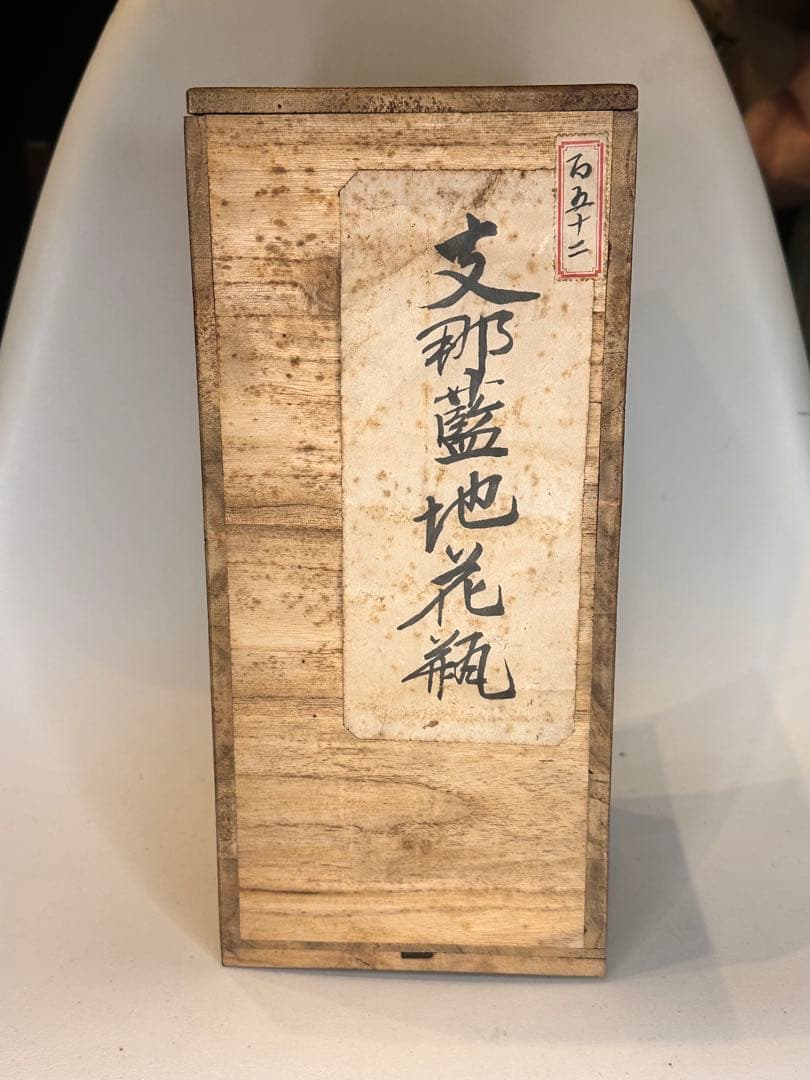 百五十二
支那藍地花瓶